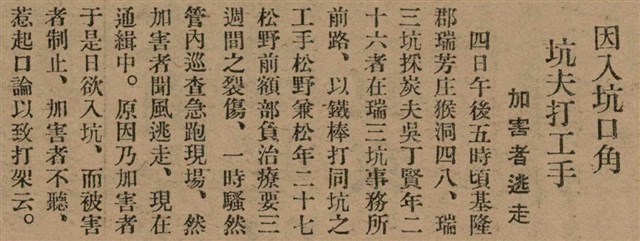 因入坑口角
坑夫打工手
加害者逃走
四日午後五時頃基隆
郡瑞芳庄猴洞四八、瑞
三坑採炭夫吳丁賢年二
十六者在瑞三坑事務所
前路、以鐵棒打同坑之
工手松野兼松年二十七
松野前額部負治療要三
週間之裂傷、一時騷然
管內巡查急跑現場、然
加害者聞風逃走、現在
通緝中。原因乃加害者
于是日欲入坑、而被害
者制止、加害者不聽、
惹起口論以致打架云。